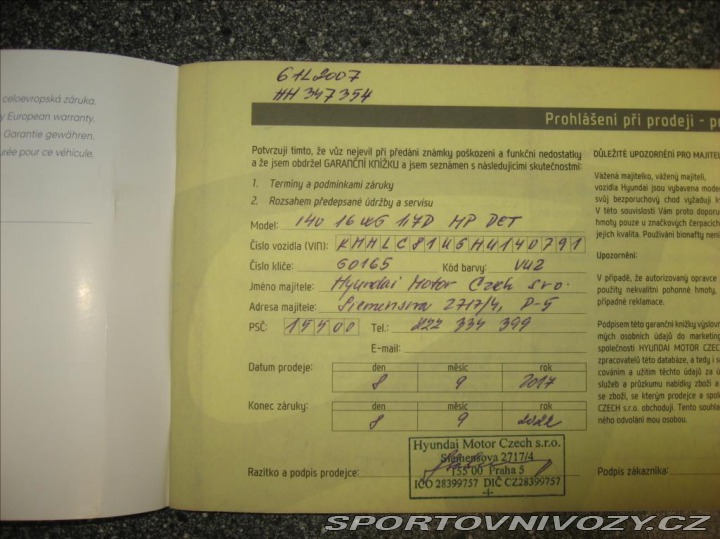 celoevropská záruka.
y European warranty.
Garantie gewähren.
urée pour ce véhicule.
61L2007
HH 347354
Prohlášení při prodeji - p
Potvrzuji tímto, že vůz nejevil při předání známky poškození a funkční nedostatky
a že jsem obdržel GARANČNÍ KNÍŽKU a jsem seznámen s následujícími skutečnostmi:
1. Termíny a podmínkami záruky
2. Rozsahem předepsané údržby a servisu
Model: i40 16 WG 1.7D HP DCT
Číslo vozidla (VIN): KMHLC81UGHU140791
Číslo klíče: G0165 Kód barvy: VU2
Jméno majitele: Hyundai Motor Czech s.r.o.
Adresa majitele: Siemensova 2717/4, P-5
PSČ: 15500 Tel.: 222 334 399
E-mail:
Datum prodeje: den měsíc rok
8 9 2017
Konec záruky: den měsíc rok
8 9 2022
Hyundai Motor Czech s.r.o.
Siemensova 2717/4
155 00 Praha 5
IČO 28399757 DIČ CZ28399757
-1-
Razítko a podpis prodejce:
Podpis zákazníka:
DŮLEŽITÉ UPOZORNĚNÍ PRO MAJITEL
Vážená majitelko, vážený majiteli,
vozidla Hyundai jsou vybavena moder
svůj bezporuchový chod vyžadují k
V této souvislosti Vám proto doporu
hmoty pouze u značkových čerpacích
jejich kvalita. Používání bionafty není
Upozornění:
V případě, že autorizovaný opravce
použity nekvalitní pohonné hmoty,
případné reklamace.
Podpisem této garanční knížky výslov
mých osobních údajů do marketing
společnosti HYUNDAI MOTOR CZEC
zpracovatelů této databáze, a tedy i s
cováním a užitím těchto údajů za ú
služeb a průzkumu nabídky zboží a
se zboží, se kterým prodejce a spol
CZECH s.r.o. obchodují. Tento souhla
ného odvolání mou osobou.
SPORTOVNIVOZY.CZ